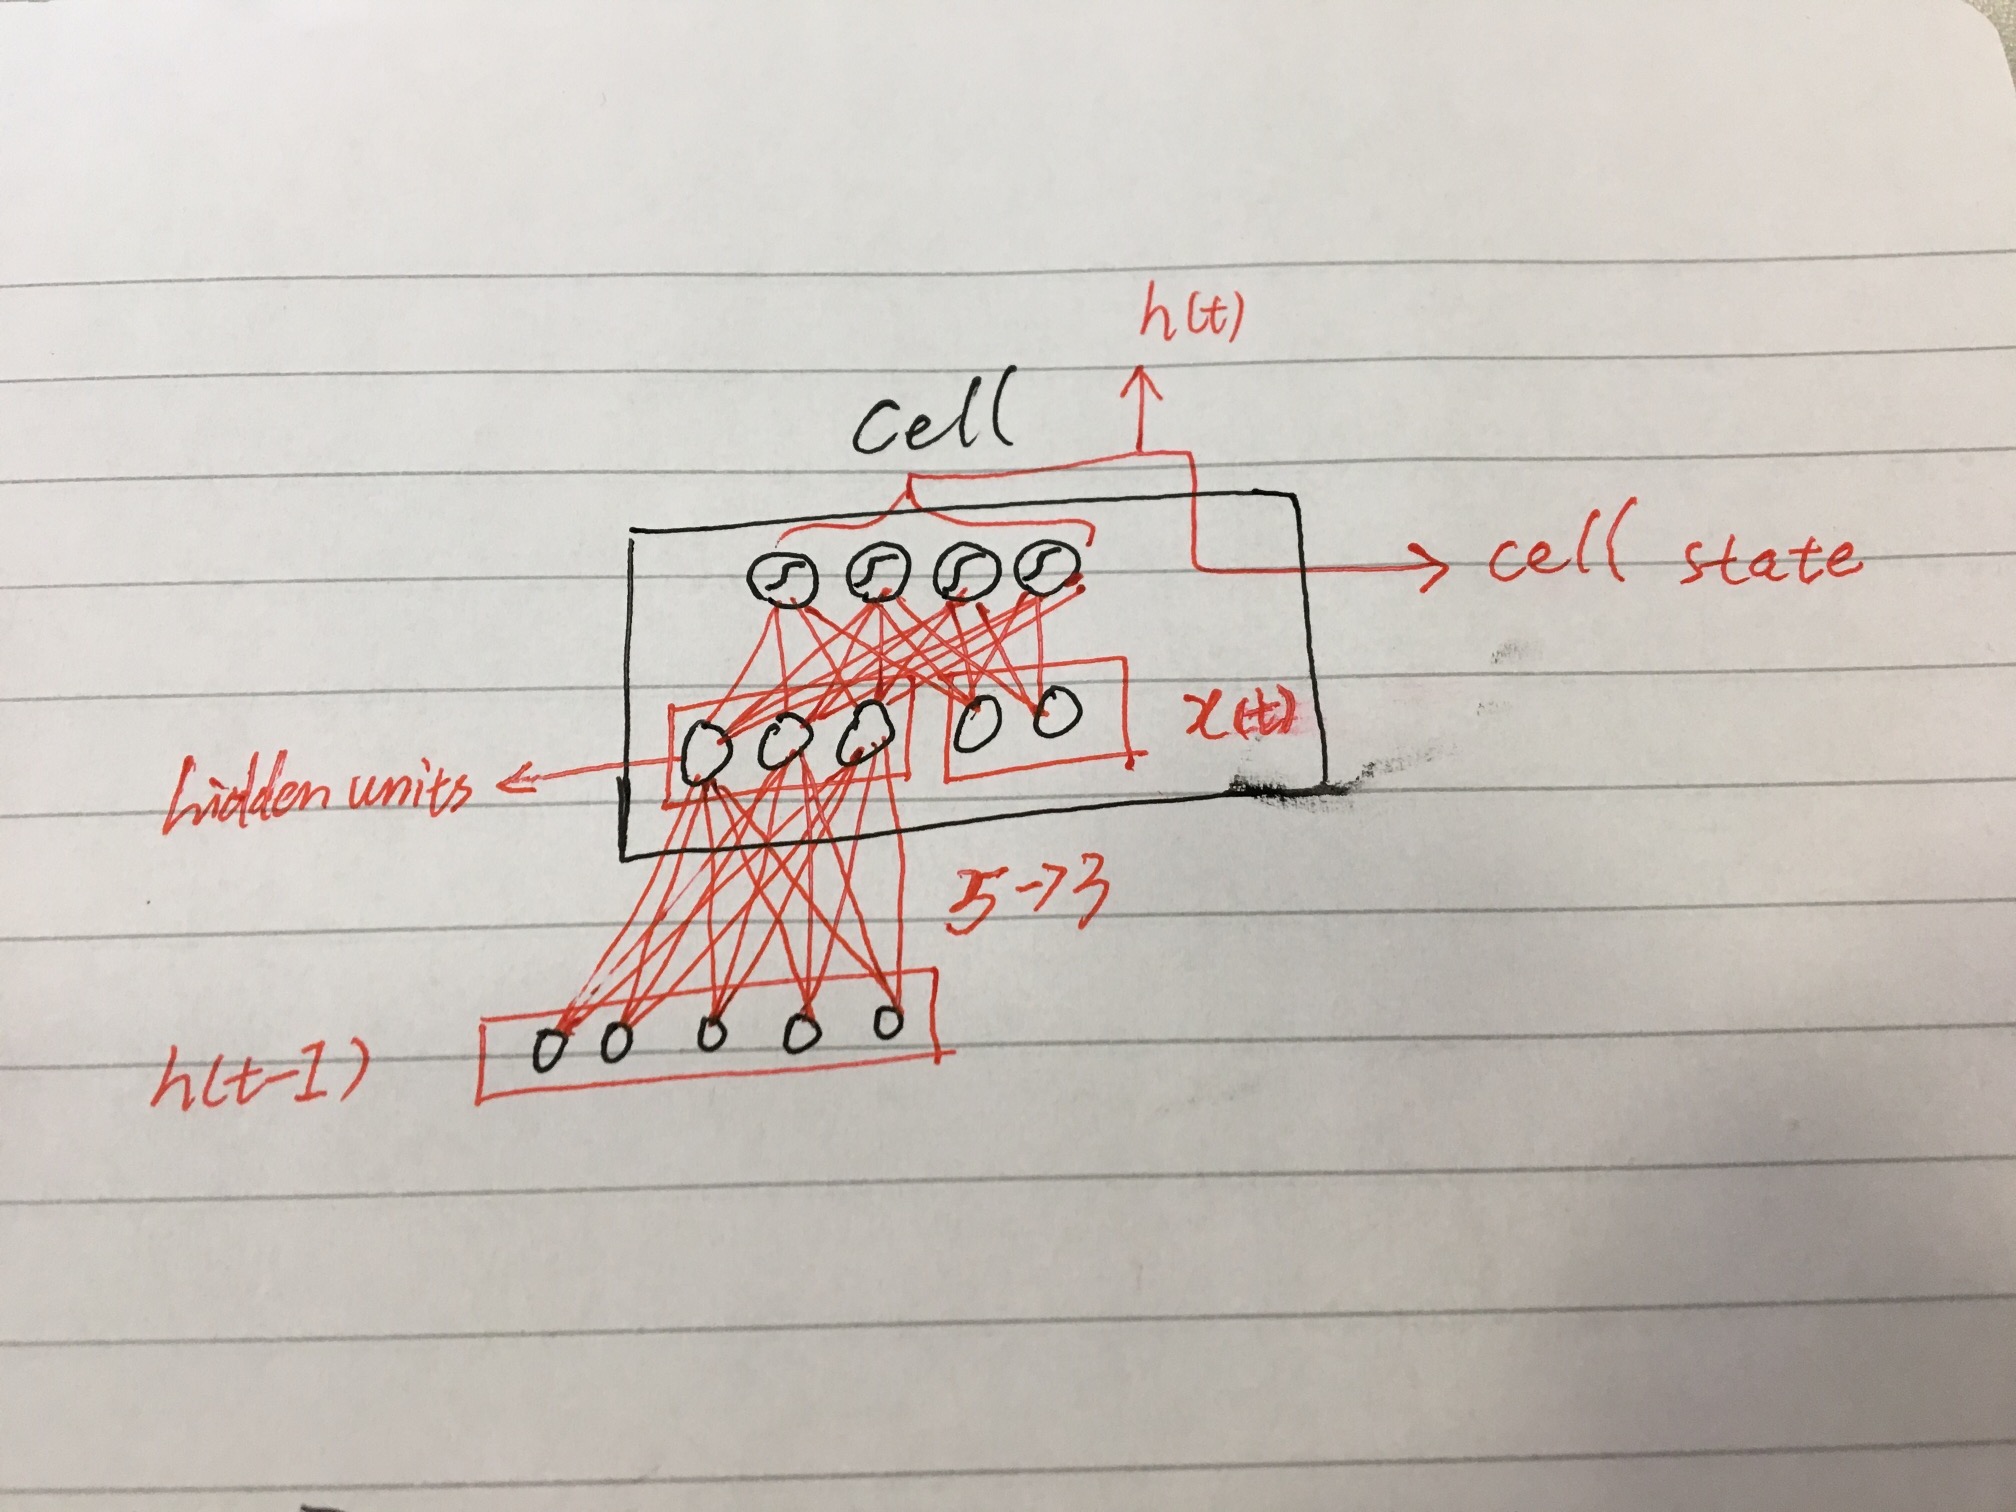 h(t)
cell
cell state
x(t)
hidden units
5->3
h(t-1)